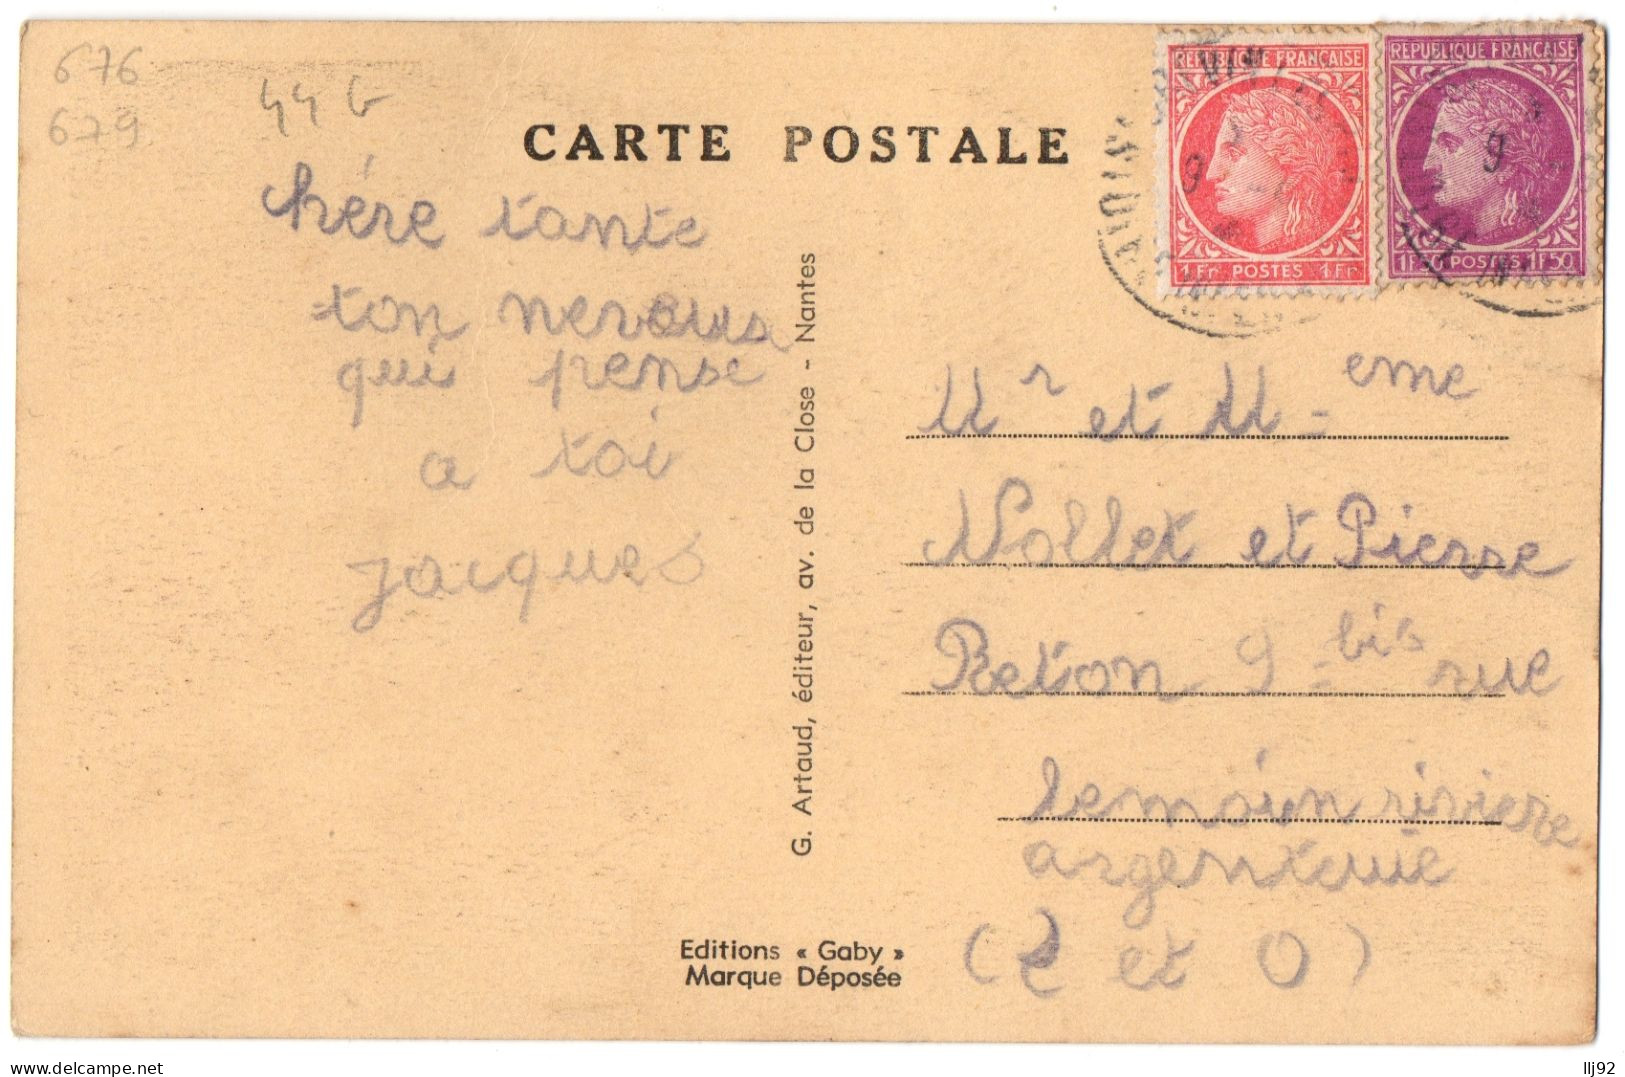 676
679
44 G
CARTE POSTALE
RÉPUBLIQUE FRANÇAISE
1 Fr POSTES 1 Fr
RÉPUBLIQUE FRANÇAISE
1F50 POSTES 1F50
9
9
hére tante
ton neveus
qui pense
a toi
jacques
G. Artaud, éditeur, av. de la Close - Nantes
Mr et M-eme
Nollet et Pierre
Reton 9-bis rue
lemoin riviere
argenteuie
( et O)
Editions « Gaby »
Marque Déposée
llj92